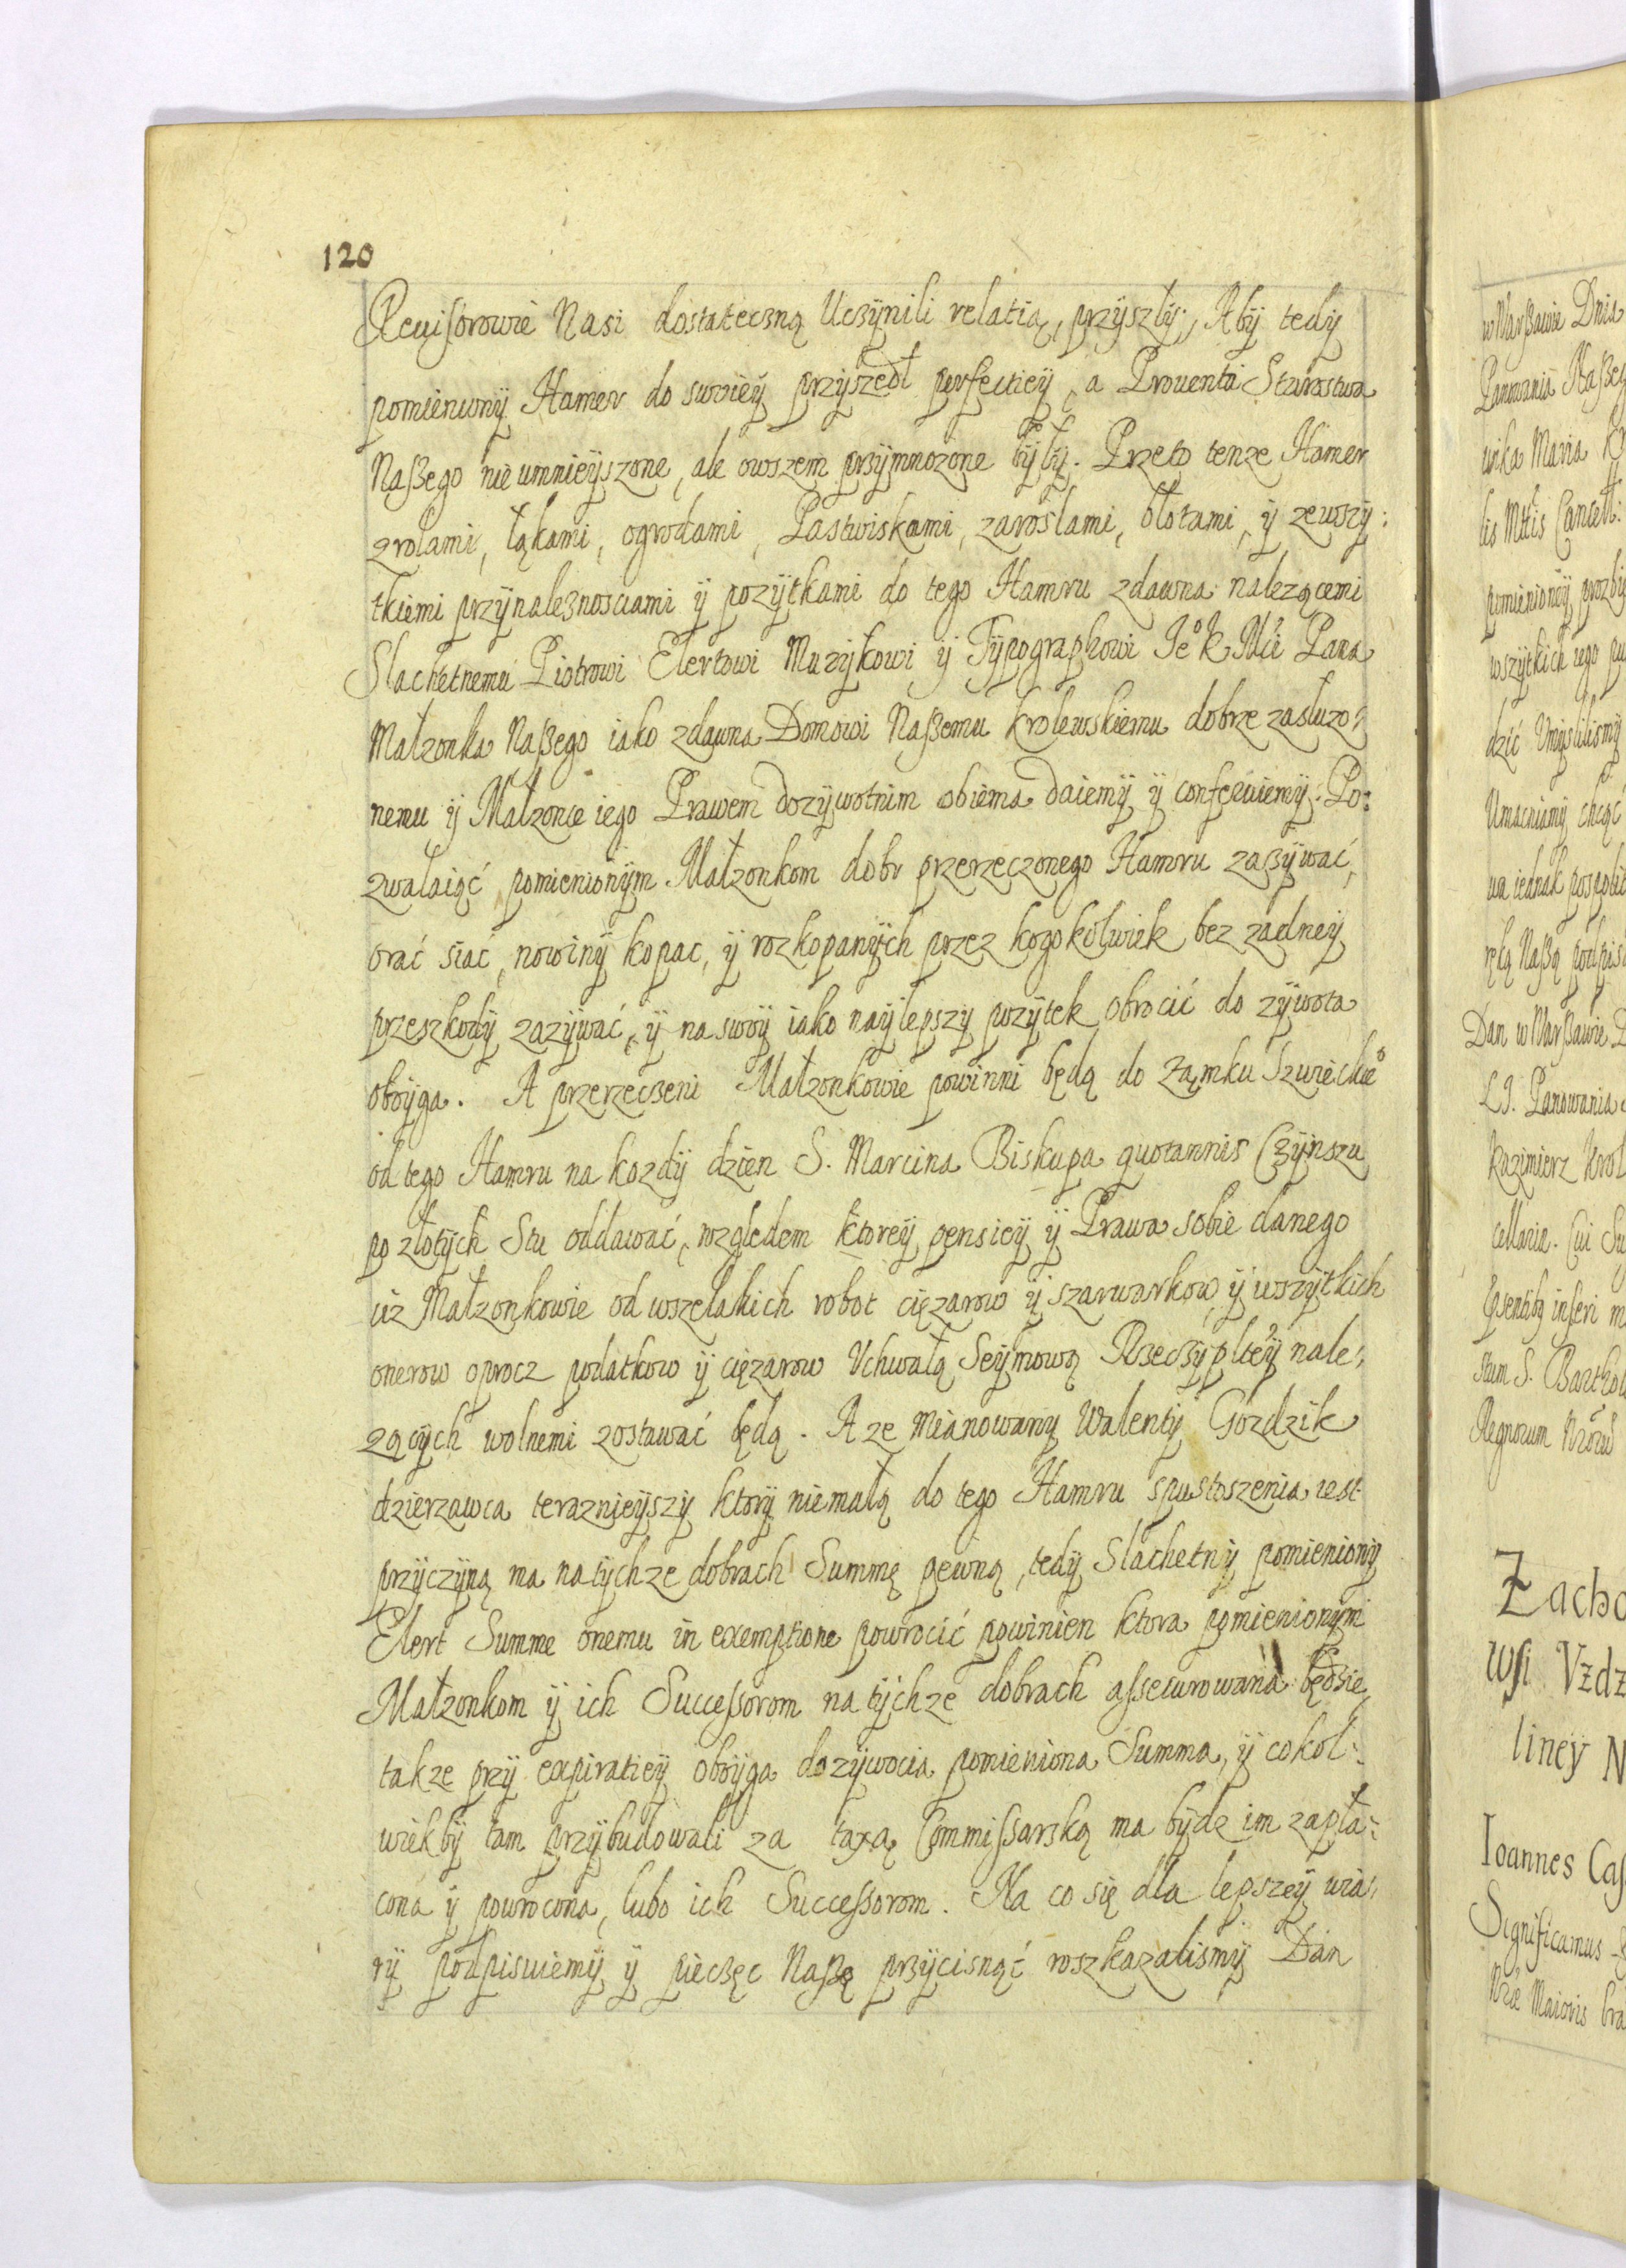 120
Reuisorowie Nasi dostateczną Uczÿnili relatią, przÿszłÿ, Abÿ tedÿ
pomienionÿ Hamer do swoieÿ przÿszedł perfectieÿ, a Prouenta Starostwa
Naßego nie umnieÿszone, ale owszem przÿmnozone bÿłÿ. Przeto tenze Hamer
z rolami, łąkami, ogrodami, Pastwiskami, zaroslami, błotami, ÿ zewszÿ:
tkiemi przÿnaleznosciami ÿ pozÿtkami do tego Hamru zdawna nalezącemi
Slachetnemu Piotrowi Elertowi Muzÿkowi ÿ Tÿpographowi Jeº K Mći Pana
Małzonka Naßego iako zdawna Domowi Naßemu krolewskiemu dobrze zasłuzo:
nemu ÿ Małzonce iego Prawem dozÿwotnim obiema daiemÿ ÿ conferuiemÿ. Po:
zwalaiąć pomienionÿm Małzonkom dobr przerzeczonego Hamru zazÿwać,
orać siać, nowinÿ kopac, ÿ rozkopanÿch przez kogokolwiek bez zadneÿ
przeszkodÿ zazÿwać, ÿ na swoÿ iako naÿlepszÿ pozÿtek obrocić do zÿwota
oboÿga. A przerzeczeni Małzonkowie powinni będą do Zamku Szwieckieº
od tego Hamru na kozdÿ dzien S. Marcina Biskupa quotannis Czÿnszu
po złotÿch Stu oddawać, wzgledem ktoreÿ pensieÿ ÿ Prawa sobie danego
ciz Małzonkowie od wszelakich robot cięzarow ÿ szarwarkow ÿ wszÿtkich
onerow oprocz podatkow ÿ cięzarow Uchwałą Seÿmową Rzeczÿplteÿ nale:
zącÿch wolnemi zostawać będą. A ze Mianowanÿ Walentÿ Gozdzik
dzierzawca teraznieÿszÿ ktorÿ niemałą do tego Hamru spustoszenia iest
przÿczÿną ma na tÿchze dobrach Summę pewną, tedÿ Slachetnÿ pomienionÿ
Elert Summe onemu in exemptione powrocić powinien ktora pomienionÿm
Małzonkom ÿ ich Successorom na tÿchze dobrach assecurowana będzie,
takze przÿ expiratieÿ oboÿga dozÿwocia pomieniona Summa, ÿ cokol:
wiekbÿ tam przÿbudowali za taxą Commissarską ma bÿdz im zapła:
cona ÿ powrocona, lubo ich Successorom. Na co się dla lepszeÿ wia:
rÿ podpisuiemÿ ÿ pieczęc Naßę przÿcisnąć roszkazalismÿ Dan
w Warßawie Dnia
Panowania Naßeg
wika Maria
lis Mttis Cancell:
pomienioneÿ prozbie
wszÿtkich iego
dzić Umÿslilismÿ
Umacniamÿ chcąć
ua iednak pospolit
ręką Naßą podpis
Dan w Warßawie D
LI. Panowania
Kazimierz Krol
cellaria. Cui Su
inseri
S. Barthol
Regnorum
Zacho
wsi Vzdz
lineÿ N
Ioannes Cas
Significamus
Maioris